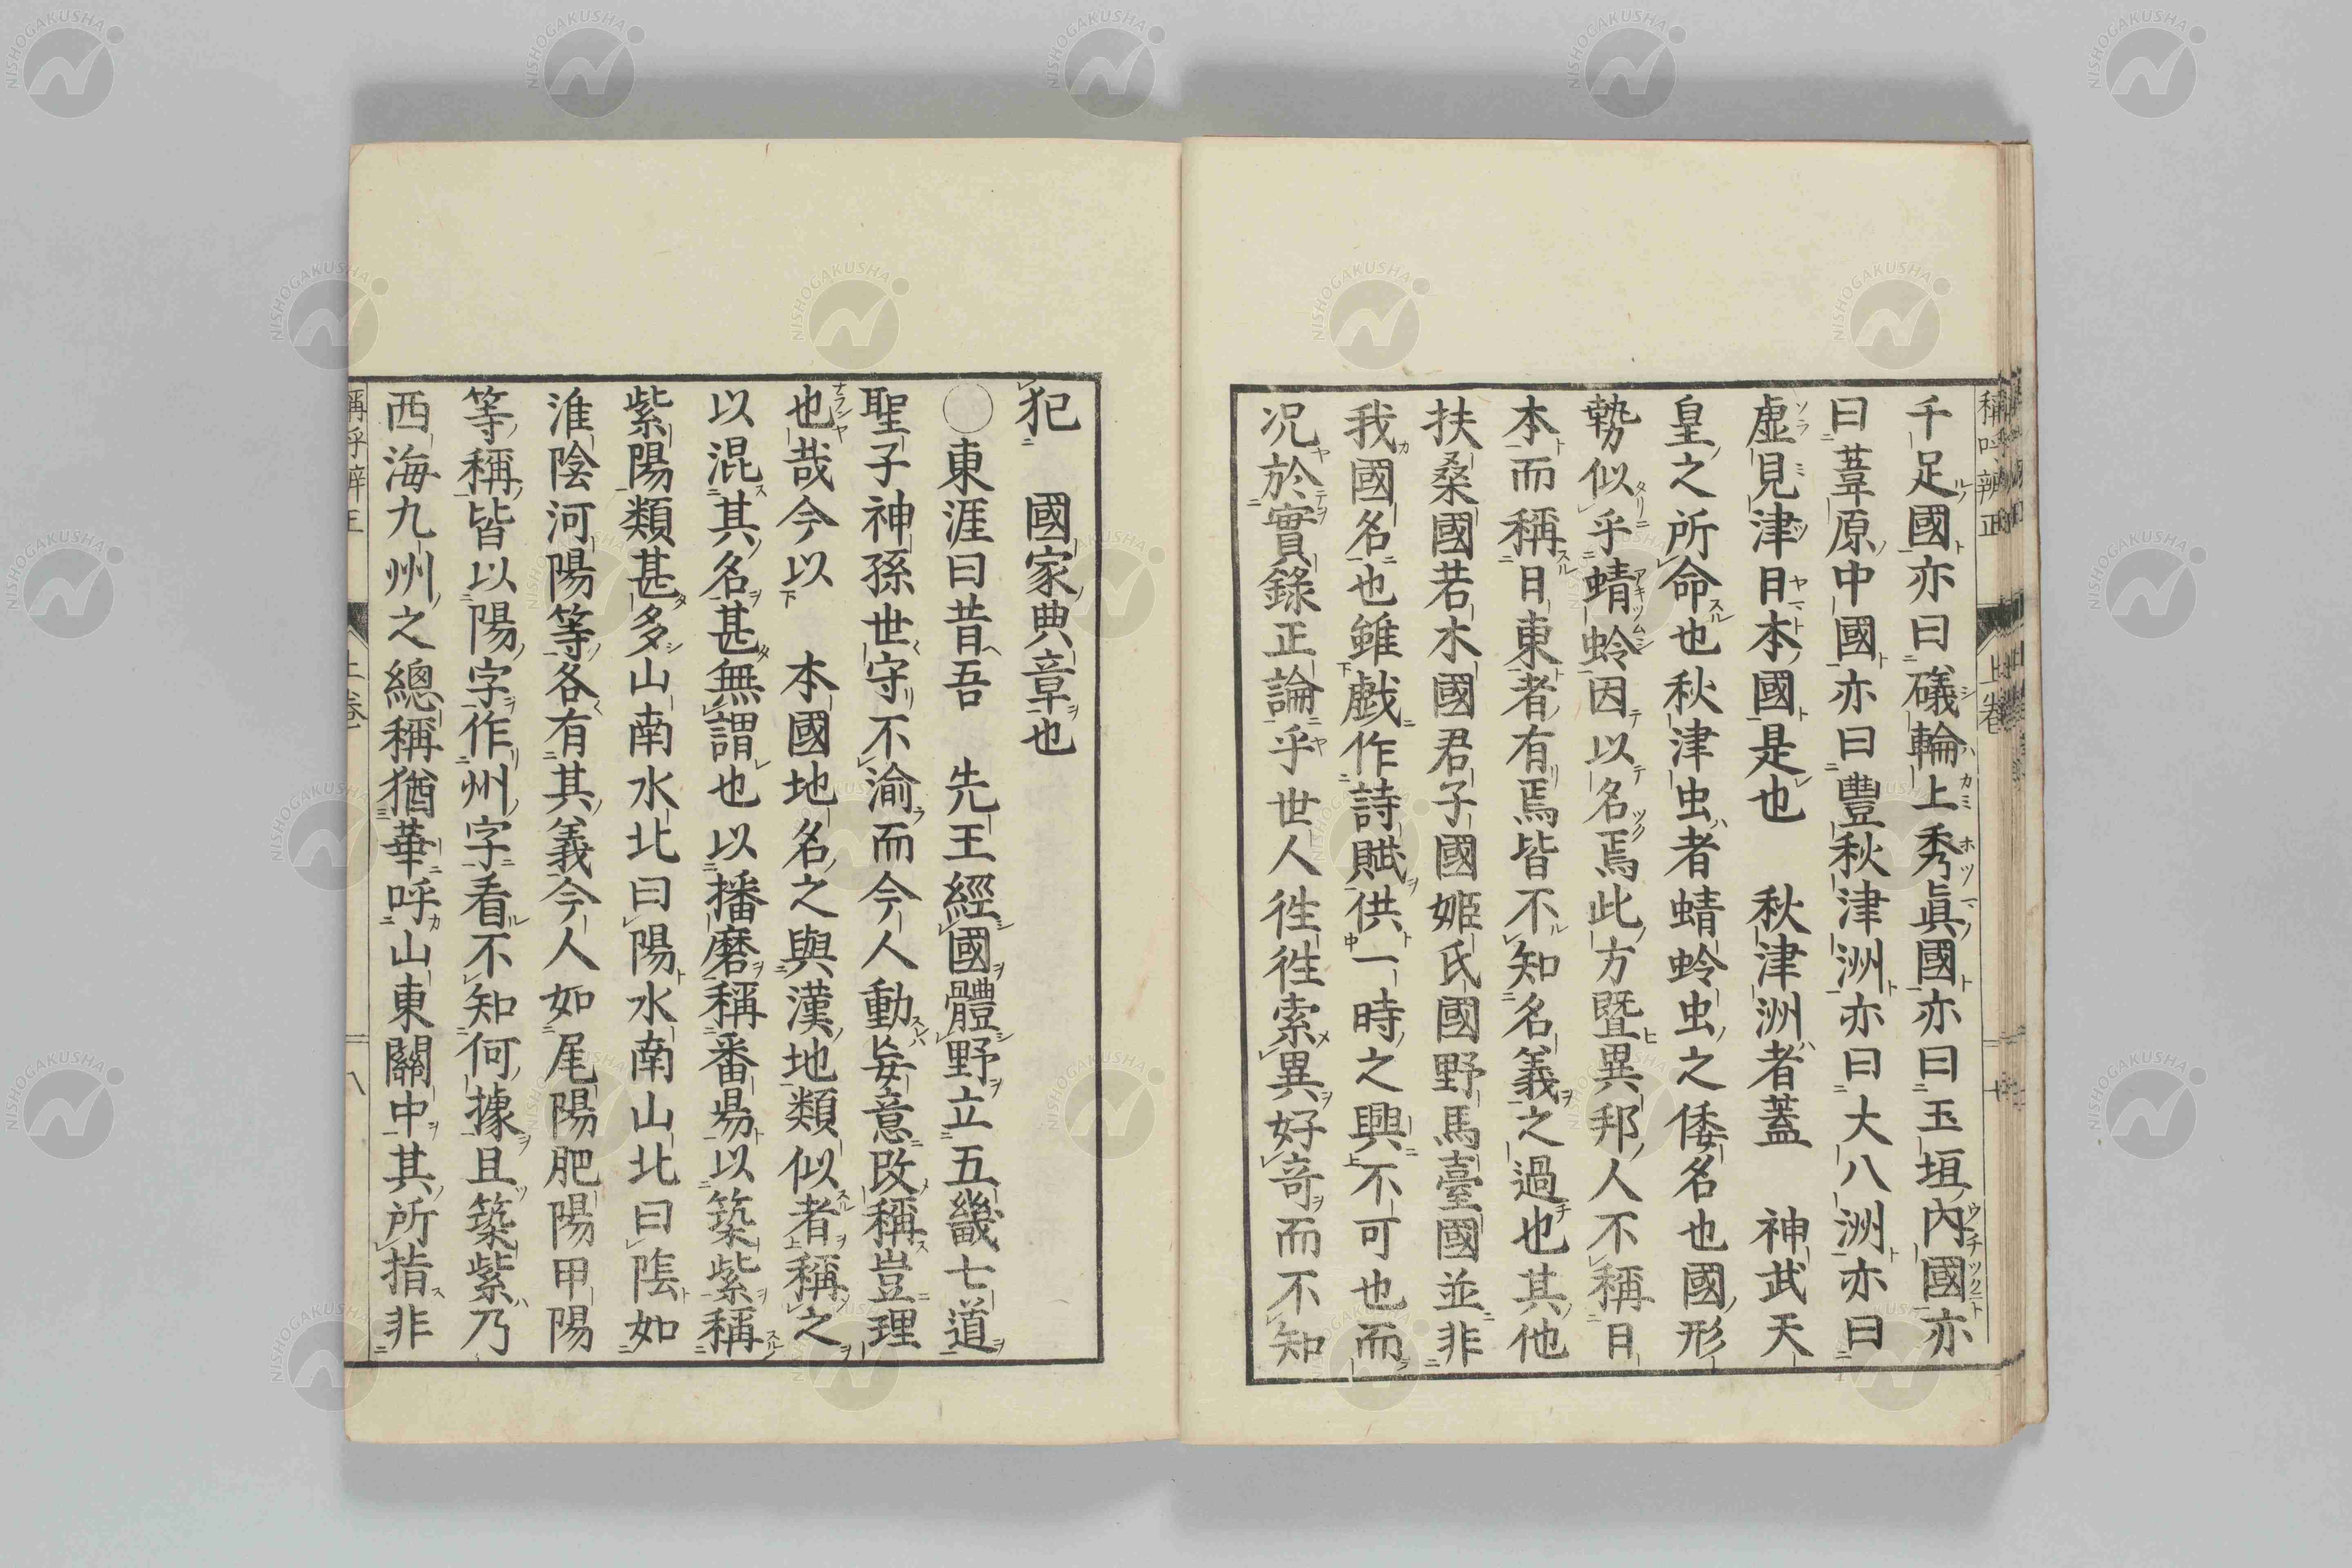 稱呼辨正 上卷
千足國亦曰礒輪上秀眞國亦曰玉垣內國亦
曰葦原中國亦曰豐秋津洲亦曰大八洲亦曰
虛見津日本國是也 秋津洲者蓋 神武天
皇之所命也秋津虫者蜻蛉虫之倭名也國形
勢似乎蜻蛉因以名焉此方暨異邦人不稱日
本而稱日東者有焉皆不知名義之過也其他
扶桑國若木國君子國姬氏國野馬臺國並非
我國名也雖戱作詩賦供一時之興不可也而
况於實錄正論乎世人徃徃索異好奇而不知
犯 國家典章也
○東涯曰昔吾 先王經國體野立五畿七道
聖子神孫世守不渝而今人動妄意改稱豈理
也哉今以 本國地名之與漢地類似者稱之
以混其名甚無謂也以播磨稱番昜以築紫稱
紫陽類甚多山南水北曰陽水南山北曰陰如
淮陰河陽等各有其義今人如尾陽肥陽甲陽
等稱皆以陽字作州字看不知何據且築紫乃
西海九州之總稱猶華呼山東關中其所指非
稱呼辨正 上卷 八
NISHOGAKUSHA